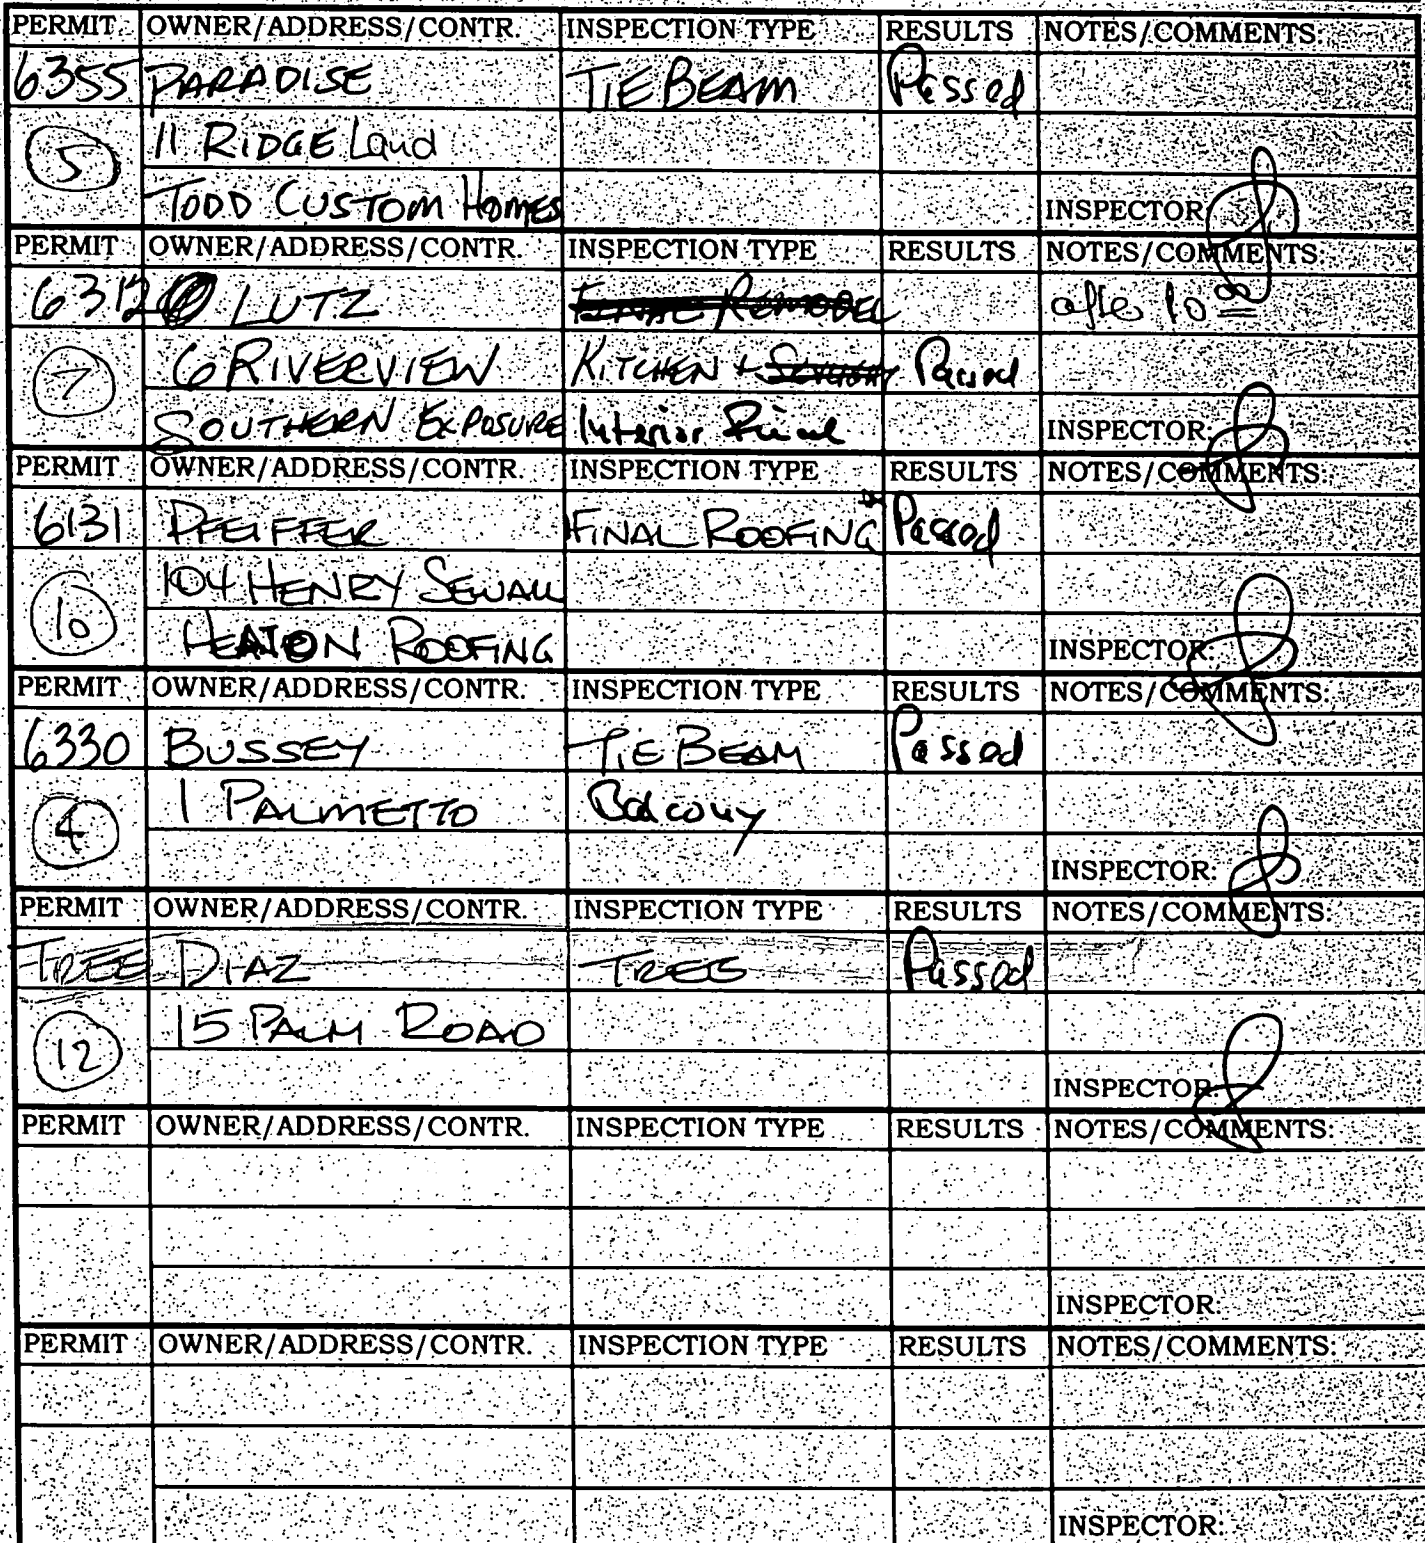 PERMIT OWNER/ADDRESS/CONTR. INSPECTION TYPE RESULTS NOTES/COMMENTS:
6355 PARADISE TIE BEAM Passed
5 11 RIDGELand
TODD CUSTOM HOMES INSPECTOR:
PERMIT OWNER/ADDRESS/CONTR. INSPECTION TYPE RESULTS NOTES/COMMENTS:
6312 LUTZ FINAL REMODEL after 10 00
7 6 RIVERVIEW KITCHEN + Passed
SOUTHERN EXPOSURE Interior Final INSPECTOR:
PERMIT OWNER/ADDRESS/CONTR. INSPECTION TYPE RESULTS NOTES/COMMENTS:
6131 PFEIFFER FINAL ROOFING Passed
10 104 HENRY SEWALL
HEATON ROOFING INSPECTOR:
PERMIT OWNER/ADDRESS/CONTR. INSPECTION TYPE RESULTS NOTES/COMMENTS:
6330 BUSSEY TIE BEAM Passed
4 1 PALMETTO Balcony
INSPECTOR:
PERMIT OWNER/ADDRESS/CONTR. INSPECTION TYPE RESULTS NOTES/COMMENTS:
TREE DIAZ TREE Passed
12 15 PALM ROAD
INSPECTOR:
PERMIT OWNER/ADDRESS/CONTR. INSPECTION TYPE RESULTS NOTES/COMMENTS:
INSPECTOR:
PERMIT OWNER/ADDRESS/CONTR. INSPECTION TYPE RESULTS NOTES/COMMENTS:
INSPECTOR: